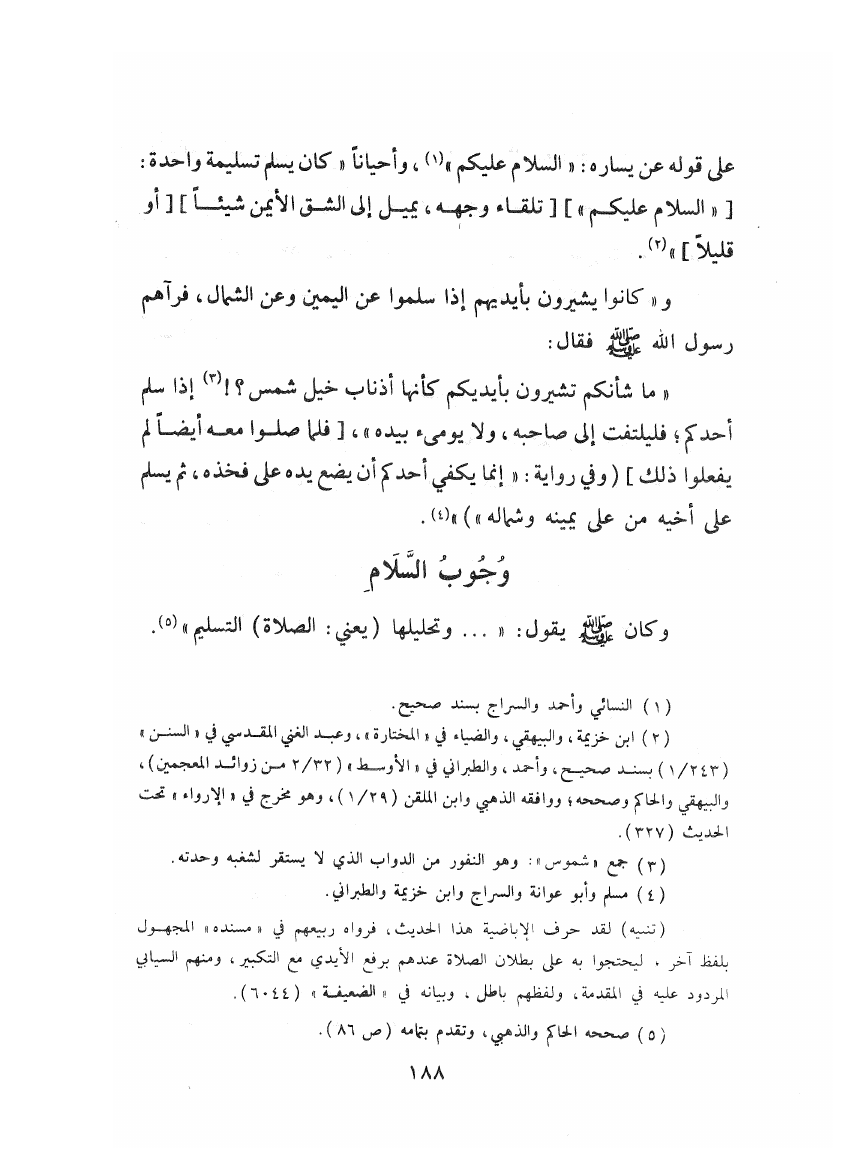 على قوله عن يساره : « السلام عليكم »(١) ، وأحياناً « كان يسلم تسليمة واحدة :
[ « السلام عليكم » ] [ تلقاء وجهه ، يميل إلى الشق الأيمن شيئاً ] [ أو
قليلاً ] »(٢) .
و « كانوا يشيرون بأيديهم إذا سلموا عن اليمين وعن الشمال ، فرآهم
رسول الله ﷺ فقال :
« ما شأنكم تشيرون بأيديكم كأنها أذناب خيل شمس ؟ !(٣) إذا سلم
أحدكم ؛ فليلتفت إلى صاحبه ، ولا يومىء بيده » ، [ فلما صلوا معه أيضاً لم
يفعلوا ذلك ] ( وفي رواية : « إنما يكفي أحدكم أن يضع يده على فخذه ، ثم يسلم
على أخيه من على يمينه وشماله » ) »(٤) .
وُجُوبُ السَّلَامِ
وكان ﷺ يقول : « ... وتحليلها (يعني : الصلاة) التسليم »(٥) .
(١) النسائي وأحمد والسراج بسند صحيح .
(٢) ابن خزيمة ، والبيهقي ، والضياء في « المختارة » ، وعبد الغني المقدسي في « السنن »
(١/٢٤٣) بسند صحيح ، وأحمد ، والطبراني في « الأوسط » (٢/٣٢ من زوائد المعجمين) ،
والبيهقي والحاكم وصححه ؛ ووافقه الذهبي وابن الملقن (١/٢٩) ، وهو مخرج في « الإرواء » تحت
الحديث (٣٢٧) .
(٣) جمع « شموس » : وهو النفور من الدواب الذي لا يستقر لشغبه وحدته .
(٤) مسلم وأبو عوانة والسراج وابن خزيمة والطبراني .
(تنبيه) لقد حرف الإباضية هذا الحديث ، فرواه ربيعهم في « مسنده » المجهول
بلفظ آخر ، ليحتجوا به على بطلان الصلاة عندهم برفع الأيدي مع التكبير ، ومنهم السيابي
المردود عليه في المقدمة ، ولفظهم باطل ، وبيانه في « الضعيفة » (٦٠٤٤) .
(٥) صححه الحاكم والذهبي ، وتقدم بتمامه (ص ٨٦) .
١٨٨